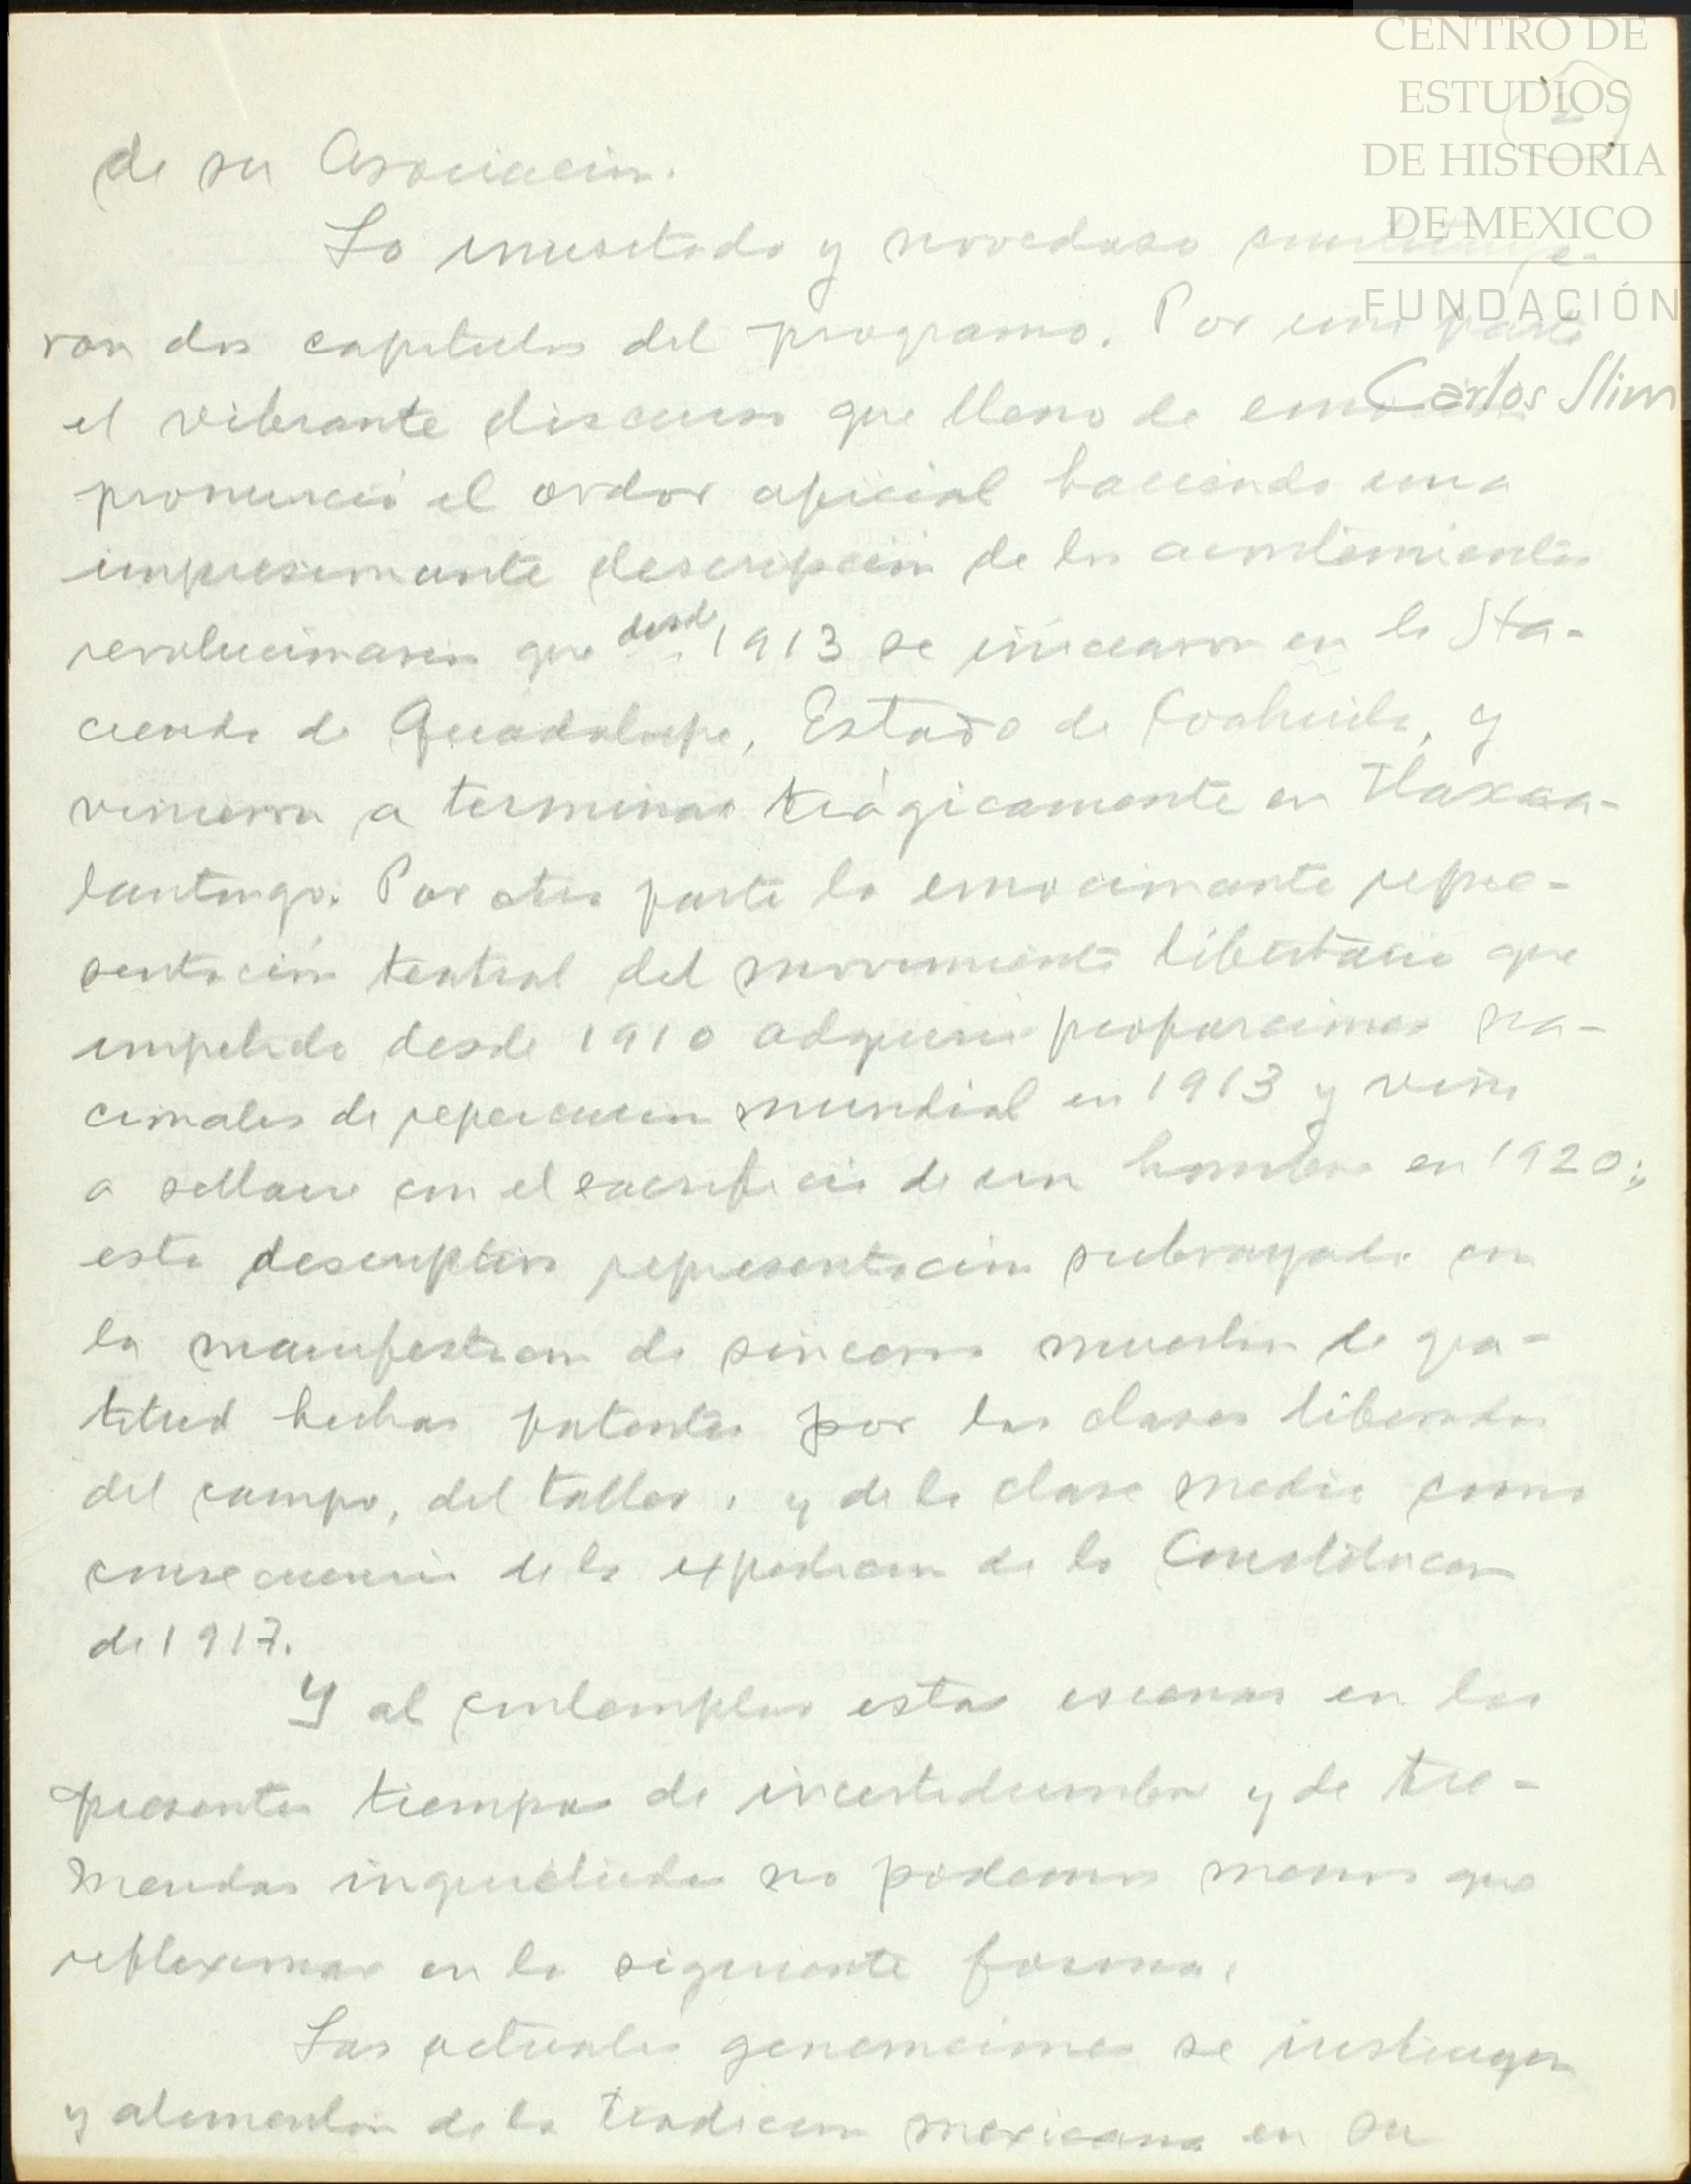 CENTRO DE
ESTUDIOS
DE HISTORIA
DE MEXICO
FUNDACIÓN
Carlos Slim
de su Asociación.
Lo inusitado y novedoso constituye-
ron dos capítulos del programa. Por una parte
el vibrante discurso que lleno de emoción
pronunció el orador oficial haciendo una
impresionante descripción de los acontecimientos
revolucionarios que desde 1913 se iniciaron en la Ha-
cienda de Guadalupe, Estado de Coahuila, y
vinieron a terminar trágicamente en Tlaxca-
lantongo. Por otra parte la emocionante repre-
sentación teatral del movimiento libertario que
impelido desde 1910 adquirió proporciones na-
cionales de repercusión mundial en 1913 y vino
a sellarse con el sacrificio de un hombre en 1920;
esta descriptiva representación subrayada con
la manifestacion de sinceras muestras de gra-
titud hechas patentes por las clases liberadas
del campo, del taller, y de la clase media como
consecuencia de la expedicion de la Constitucion
de 1917.
Y al contemplar estas escenas en los
presentes tiempos de incertidumbre y de tre-
mendas inquietudes no podemos menos que
reflexionar en la siguiente forma.
Las actuales generaciones se instruyen
y alimentan de la tradicion mexicana en su